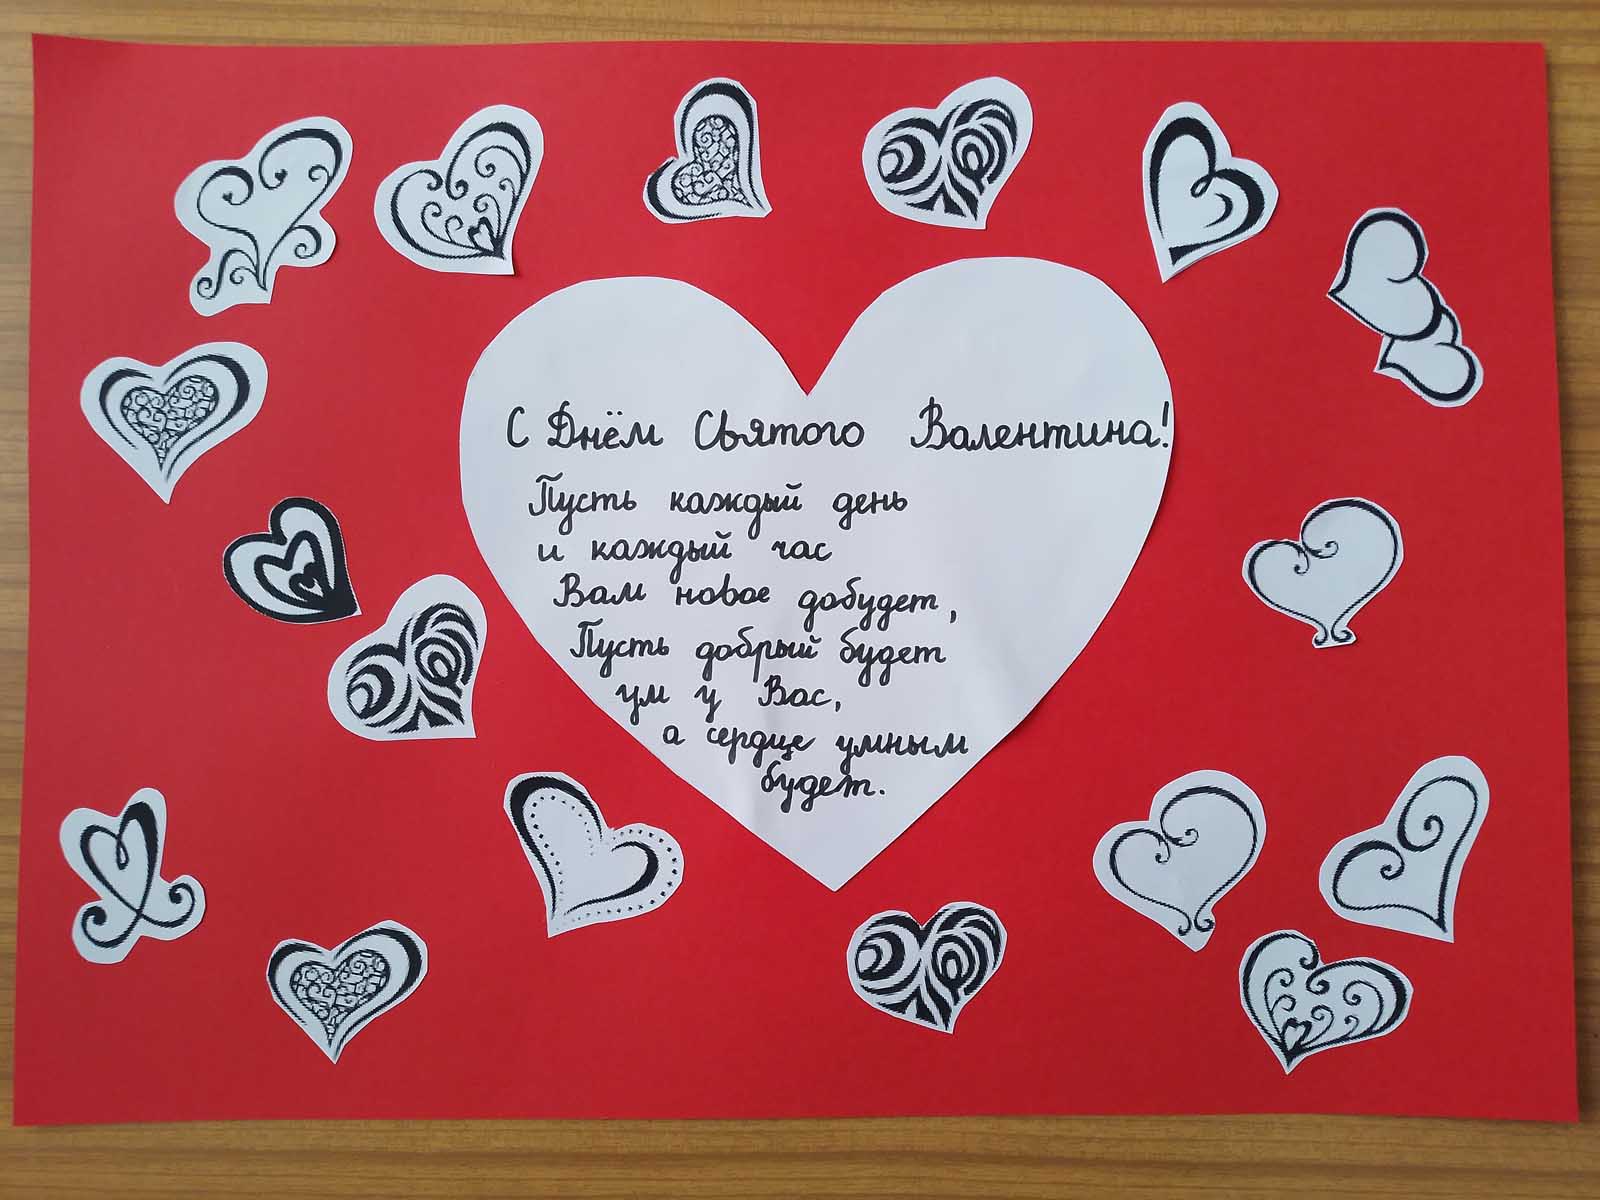 С Днём Святого Валентина!
Пусть каждый день
и каждый час
Вам новое добудет,
Пусть добрый будет
ум у Вас,
а сердце умным
будет.